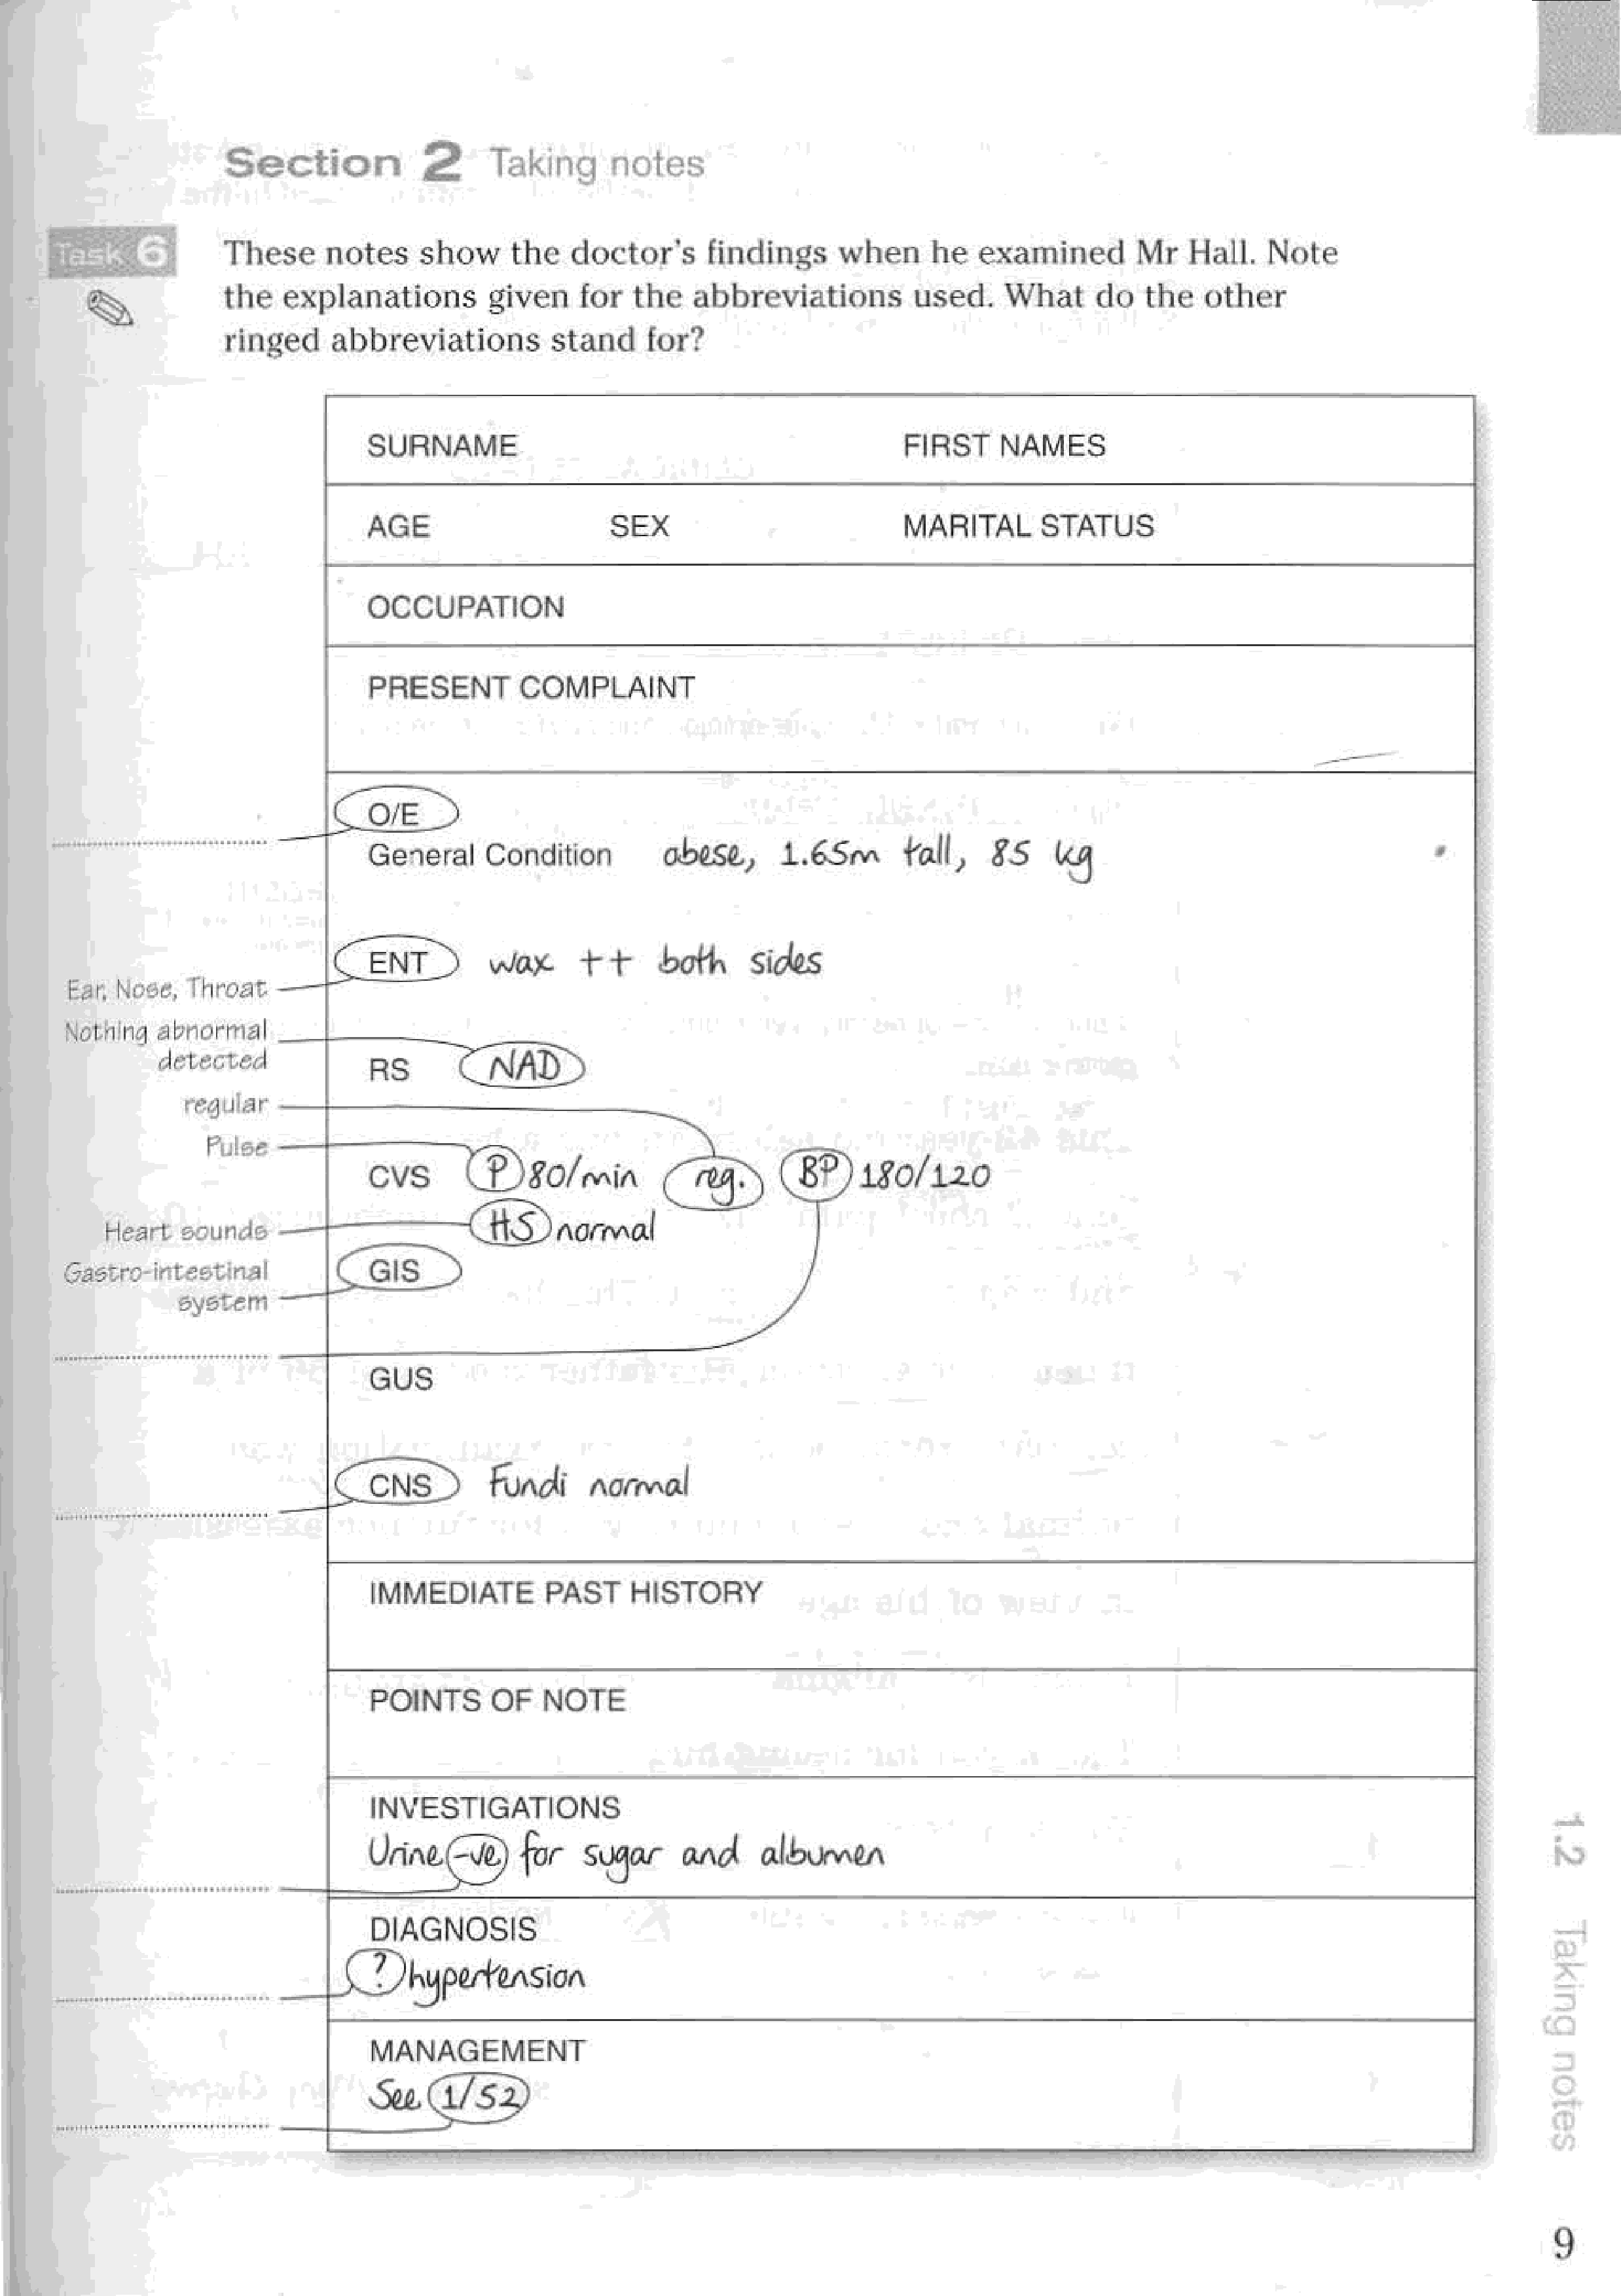 Section 2 Taking notes
Task 6
These notes show the doctor's findings when he examined Mr Hall. Note
the explanations given for the abbreviations used. What do the other
ringed abbreviations stand for?
SURNAME FIRST NAMES
AGE SEX MARITAL STATUS
OCCUPATION
PRESENT COMPLAINT
O/E
General Condition obese, 1.65m tall, 85 kg
ENT wax ++ both sides
Ear, Nose, Throat
Nothing abnormal
detected
RS NAD
regular
Pulse
CVS P 80/min reg. BP 180/120
Heart sounds
HS normal
Gastro-intestinal
system
GIS
GUS
CNS Fundi normal
IMMEDIATE PAST HISTORY
POINTS OF NOTE
INVESTIGATIONS
Urine -ve for sugar and albumen
DIAGNOSIS
? hypertension
MANAGEMENT
See 1/52
1.2 Taking notes
9